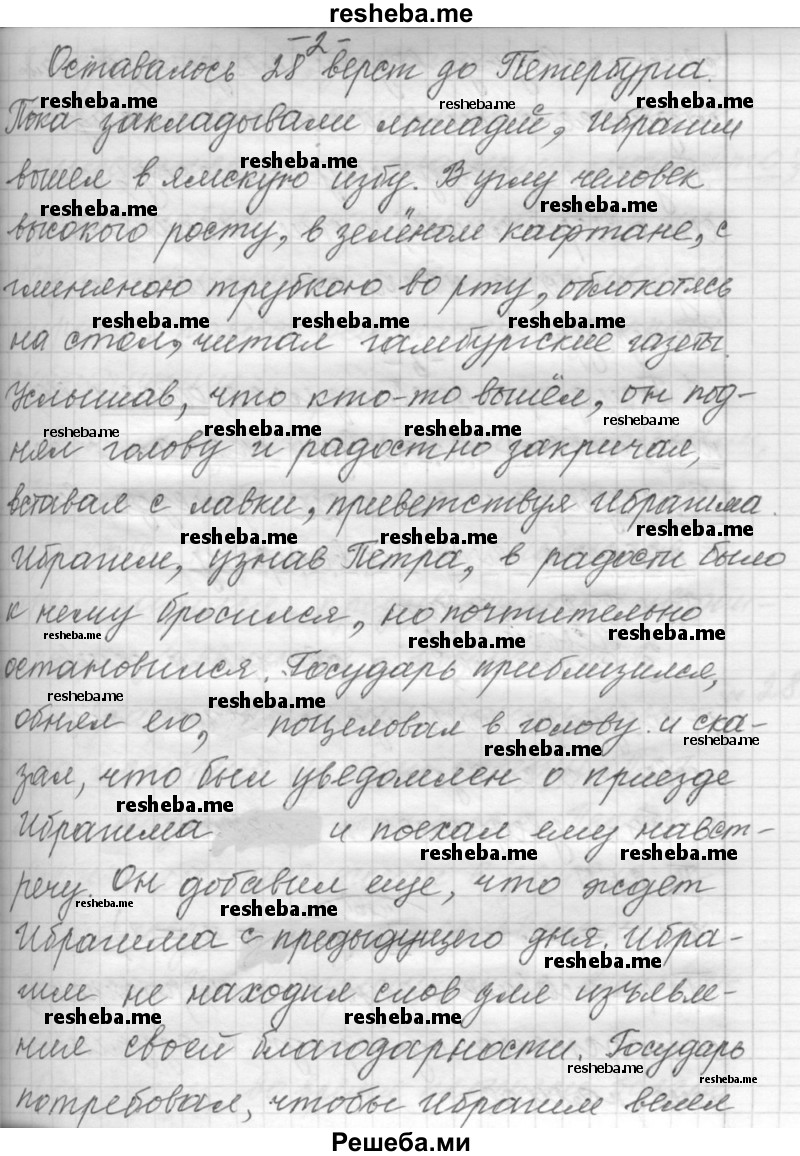 resheba.me
-2-
Оставалось 28 верст до Петербурга.
resheba.me resheba.me resheba.me
Пока закладывали лошадей, Ибрагим
resheba.me
вышел в ямскую избу. В углу человек
resheba.me resheba.me
высокого росту, в зелёном кафтане, с
глиняною трубкою во рту, облокотясь
resheba.me resheba.me resheba.me
на стол, читал гамбургские газеты.
Услышав, что кто-то вышёл, он под-
resheba.me resheba.me resheba.me resheba.me
нял голову и радостно закричал,
вставал с лавки, приветствуя Ибрагима.
resheba.me resheba.me resheba.me
Ибрагим, узнав Петра, в радости было
к нему бросился, но почтительно
resheba.me resheba.me resheba.me
остановился. Государь приблизился,
resheba.me resheba.me
обнял его, поцеловал в голову и ска-
resheba.me resheba.me
зал, что был уведомлен о приезде
resheba.me
Ибрагима и поехал ему навст-
resheba.me resheba.me
речу. Он добавил еще, что ждет
resheba.me resheba.me
Ибрагима с предыдущего дня. Ибра-
resheba.me
гим не находил слов для изъявле-
resheba.me resheba.me
ния своей благодарности. Государь
resheba.me resheba.me
потребовал, чтобы Ибрагим велел
Решеба.ми